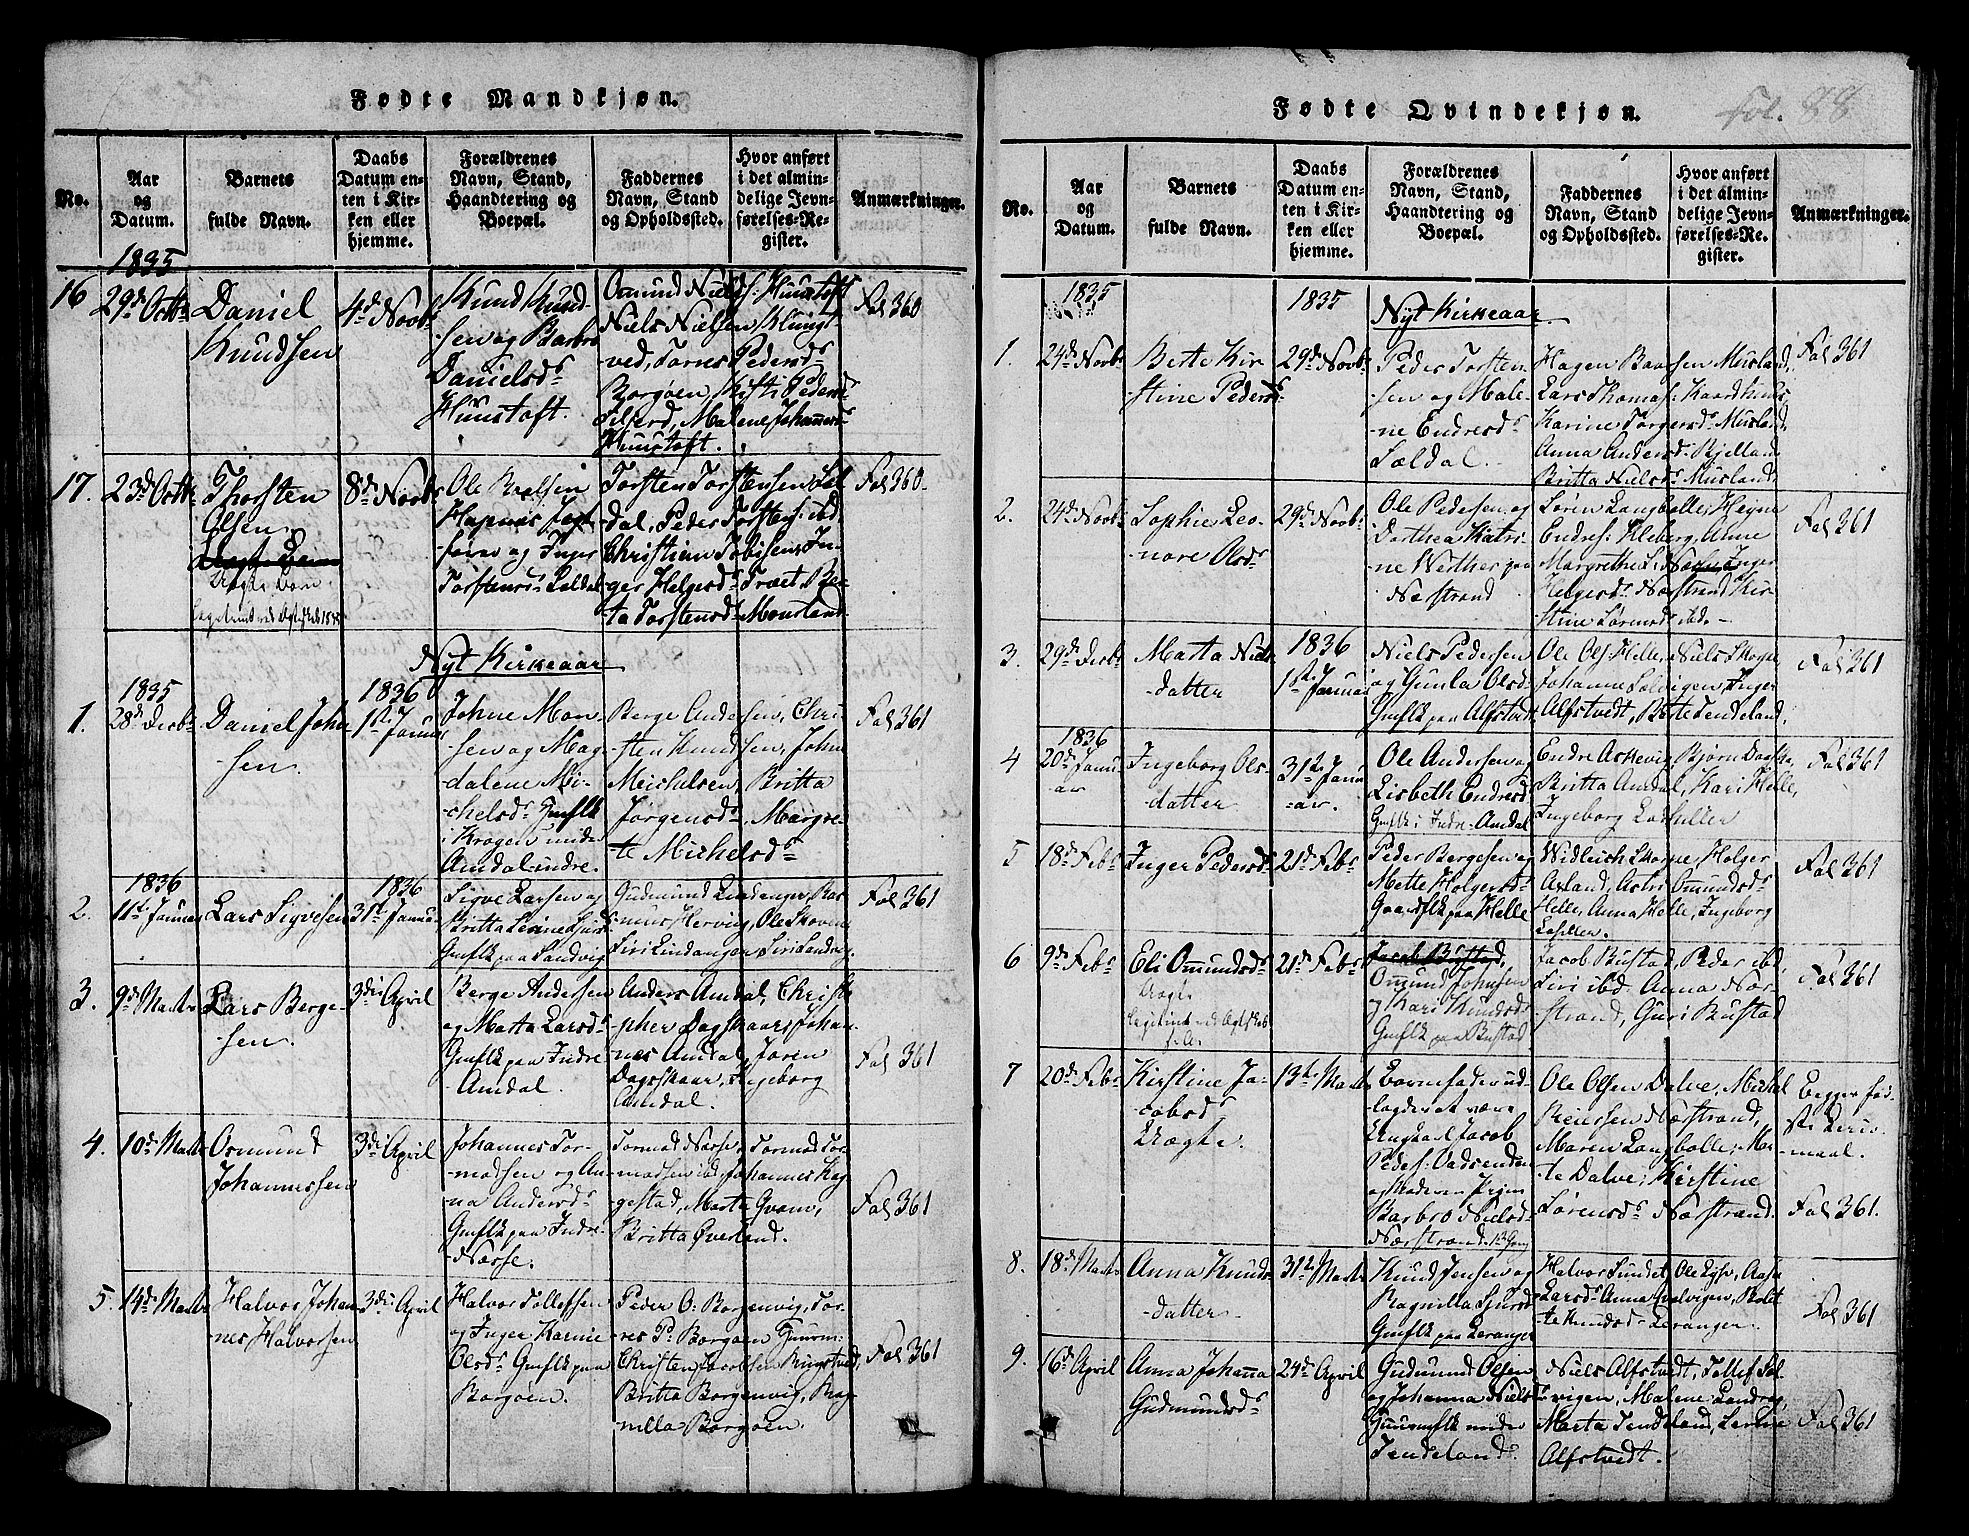 Fødte Mandkjøn.
No.
Aar og Datum.
Barnets fulde Navn.
Daabs Datum enten i Kirken eller hjemme.
Forældrenes Navn, Stand, Haandtering og Boepæl.
Faddernes Navn, Stand og Opholdssted.
Hvor anført i det almindelige Jevnførelses-Register.
Anmærkninger.
1835
16 29de Octbr
Daniel
Knudsen
4de Novbr
Knud Knud-
sen og Barbro
Danielsdr
Huustoft.
Omund Niels: Huustoft
Niels Nielsen Klungt-
ved, Tornes Pedersdr
Borgøen, Kisti Pedersd
Huustoft.
Fol 360
17. 23de Octbr
Thorsten
Olsen
Uægte Barn
8de Novbr
og Inger
Torstensdr Søldal
Torsten Torstensen Søl
dal, Peder Torstens: ibd
Christian Tobisen, In-
ger Helgesdr Træet, Be-
ta Torstensdr Mousland
Fol 360.
Nyt Kirkeaar
1835
1. 28de Decbr
Daniel John-
sen.
1836
1ste Januar
Johne Mon-
sen og Mag-
dalene Mi-
chelsdr
i Krogen under
Amdal indre.
Berge Andersen, Chri-
sten Knudsen, John
Michelsen, Britta
Jørgensdr, Margre-
te Michelsdr
Fol 361
1836
2. 11te Januar
Lars Sigvesen
1836
31te Janu-
Sigve Larsen og
Britta
paa Sandvig
Gudmund Lindanger, Ras-
mus Hervig, Ole Skoven
Siri Lindanger, Siri Sandvig.
Fol 361
3. 9de Marts
Lars Berge-
sen.
3die April
Berge Andersen
og Marta Larsdr
paa Indre
Amdal.
Anders Amdal, Christo-
pher Dagskaar, Johan-
nes Amdal, Joren
Dagskaar, Ingeborg
Amdal.
Fol 361
4. 10de Marts
Osmund
Johannessen
3die April
Johannes Tor-
modsen og An-
na Andersdr
paa Indre
Nærse.
Tormod Nærse, Tormod Tor-
modsen ibd, Johannes Røg-
gestad, Marta Qvam,
Britta Øverland.
Fol 361
5. 14de Marts
Halvor Johan-
nes Halvorsen
3die April
Halvor Tollefsen
og Inger Karine
Olsdr paa
Borgøen.
Peder O: Borgenvig, Tor-
res P: Borgøen
Christen Jacobsen
Britta Borgenvig, Rag-
nilla Borgøen
Fol 361
Fødte Qvindekjøn.
fol. 88
No.
Aar og Datum.
Barnets fulde Navn.
Daabs Datum enten i Kirken eller hjemme.
Forældrenes Navn, Stand, Haandtering og Boepæl.
Faddernes Navn, Stand og Opholdssted.
Hvor anført i det almindelige Jevnførelses-Register.
Anmærkninger.
1835
1835
Nyt Kirkeaar
1. 24de Novbr
Bette Kir-
stine Pedersd
29de Novbr
Peder Torsten-
sen og Male-
ne Endresdr
Søldal.
Hagen Baarsen Musland,
Lars Thomas: Kaardhuus
Karine Torgersdr Musland,
Anna Andersdr Bjelland
Britta Nielsdr Musland
Fol 361
2. 24de Novbr
Sophie Leo-
nore Olsdr
29de Novbr
Ole Pedersen og
Dorthea Katri-
ne Werther paa
Nærstrand
Søren Langbolle, Heine
Endres: Kleberg, Anne
Margrethe Inger
Helgesdr Nærstrand, Kir-
stine Sørensdr ibd.
Fol 361
3. 29de Decbr
Marta Niels-
datter
1836
1ste Januar
Niels Pedersen
og Gunla Olsdr
paa Alfstvedt
Ole Ols: Helle, Niels Skogne
Johanne Solvigen, Inger
Alfstvedt, Berte Tendeland,
Fol 361
1836
4 20de Janu-
ar
Ingeborg Ols-
datter
31te Janu-
ar.
Ole Andersen og
Lisbeth Endresd
i Indre Amdal
Endre Askevig, Bjørn
Britta Amdal, Kari Helle,
Ingeborg
Fol 361
5 18de Febr
Inger Pedersd
21de Febr
Peder Bergesen og
Mette Holgersdr
paa Helle
Widleich Skorpe, Holger
Axland, Astri Omundsdr
Helle, Anna Helle, Ingeborg
Fol 361
6 9de Febr
Eli Omundsdr
Uægte
21de Febr
Jacob Bustad,
Omund Johnsen
og Kari Knudsdr
paa Bustad
Jacob Bustad, Peder ibd,
Siri ibd, Anna Nær-
strand, Guri Bustad
Fol 361
7 20de Febr
Kirstine Ja-
cobsdr
Uægte.
13de Marts
Barnefader ud-
lagdes at være
Ungkarl Jacob
Peders:
og Moderen Pigen
Barbro Nielsdr
Nærstrand. 1ste Gang
Ole Olsen Dalve, Michel
Reiersen Nærstrand,
Maren Langbolle, Mar-
te Dalve, Kirstine
Sørensdr Nærstrand.
Begges før-
ste Leier-
maal.
Fol 361.
8. 18de Marts
Anna Knuds-
datter
31te Marts
Knud Jensen og
Ragnilla Sjursdr
paa Leranger
Halvor Sundet, Ole Aasen
Larsdr Anna
te Knudsdr Leranger.
Fol 361
9. 16de April
Anna Johanna
Gudmundsdr
24de April
Gudmund Olsen
og Johanna Niels-
under
Tendeland.
Niels Alfstvedt, Tollef Sol-
vigen, Malene
Marta Tendeland,
Alfstvedt.
Fol 361